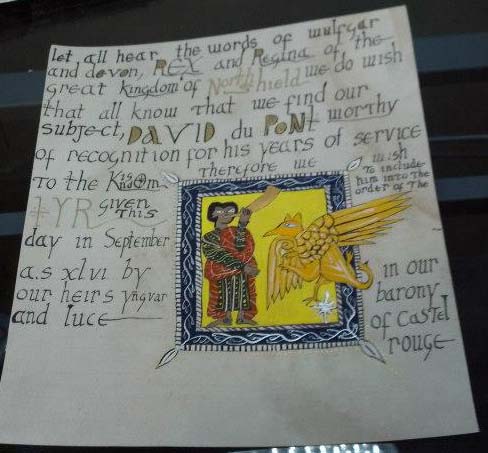 let all hear the words of wulfgar
and devon, REX and Regina of the
great kingdom of Northshield we do wish
that all know That we find our
subject, DAVID du PONT worthy
of recognition for his years of service
To the Kingdom. Therefore we wish
To include
him into The
order of The
TYR given
This
day in September
a.s xlvi by
our heirs yngvar
and luce
in our
barony
of casTel
rouge